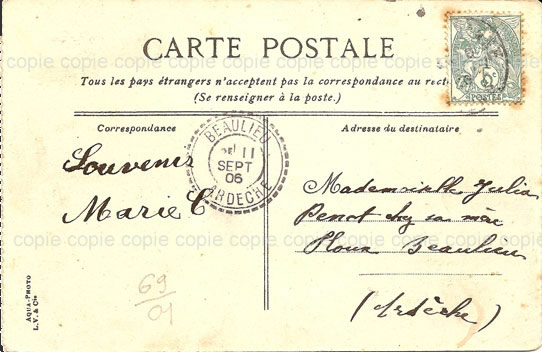 CARTE POSTALE
Tous les pays étrangers n'acceptent pas la correspondance au recto
(Se renseigner à la poste.)
Correspondance
Adresse du destinataire
BEAULIEU
11
SEPT
06
ARDÈCHE
5c
POSTES
Souvenir
Marie C
Mademoiselle Julia
chez sa mère
Beaulieu
(Ardèche)
69
01
AQUA-PHOTO
L. V. & Cie
copie copie copie copie copie copie copie copie copie copie
copie copie copie copie copie copie copie copie copie copie
copie copie copie copie copie copie copie copie copie copie